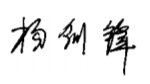 杨剑锋